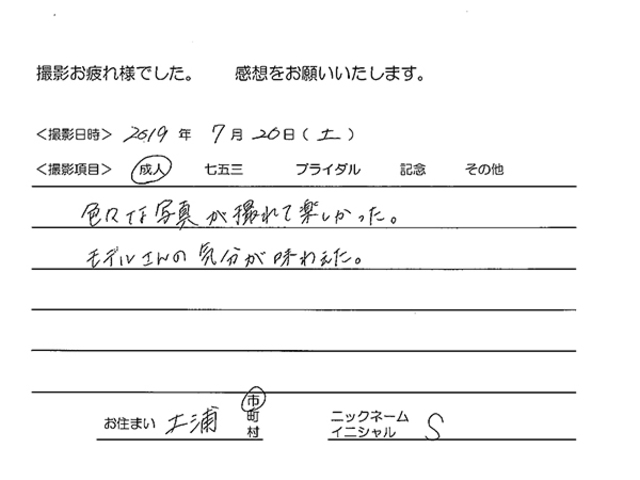 撮影お疲れ様でした。 感想をお願いいたします。
＜撮影日時＞ 2019 年 7 月 20 日 ( 土 )
＜撮影項目＞ 成人 七五三 ブライダル 記念 その他
色々な写真が撮れて楽しかった。
モデルさんの気分が味わえた。
お住まい 土浦 市 町 村 ニックネーム イニシャル S